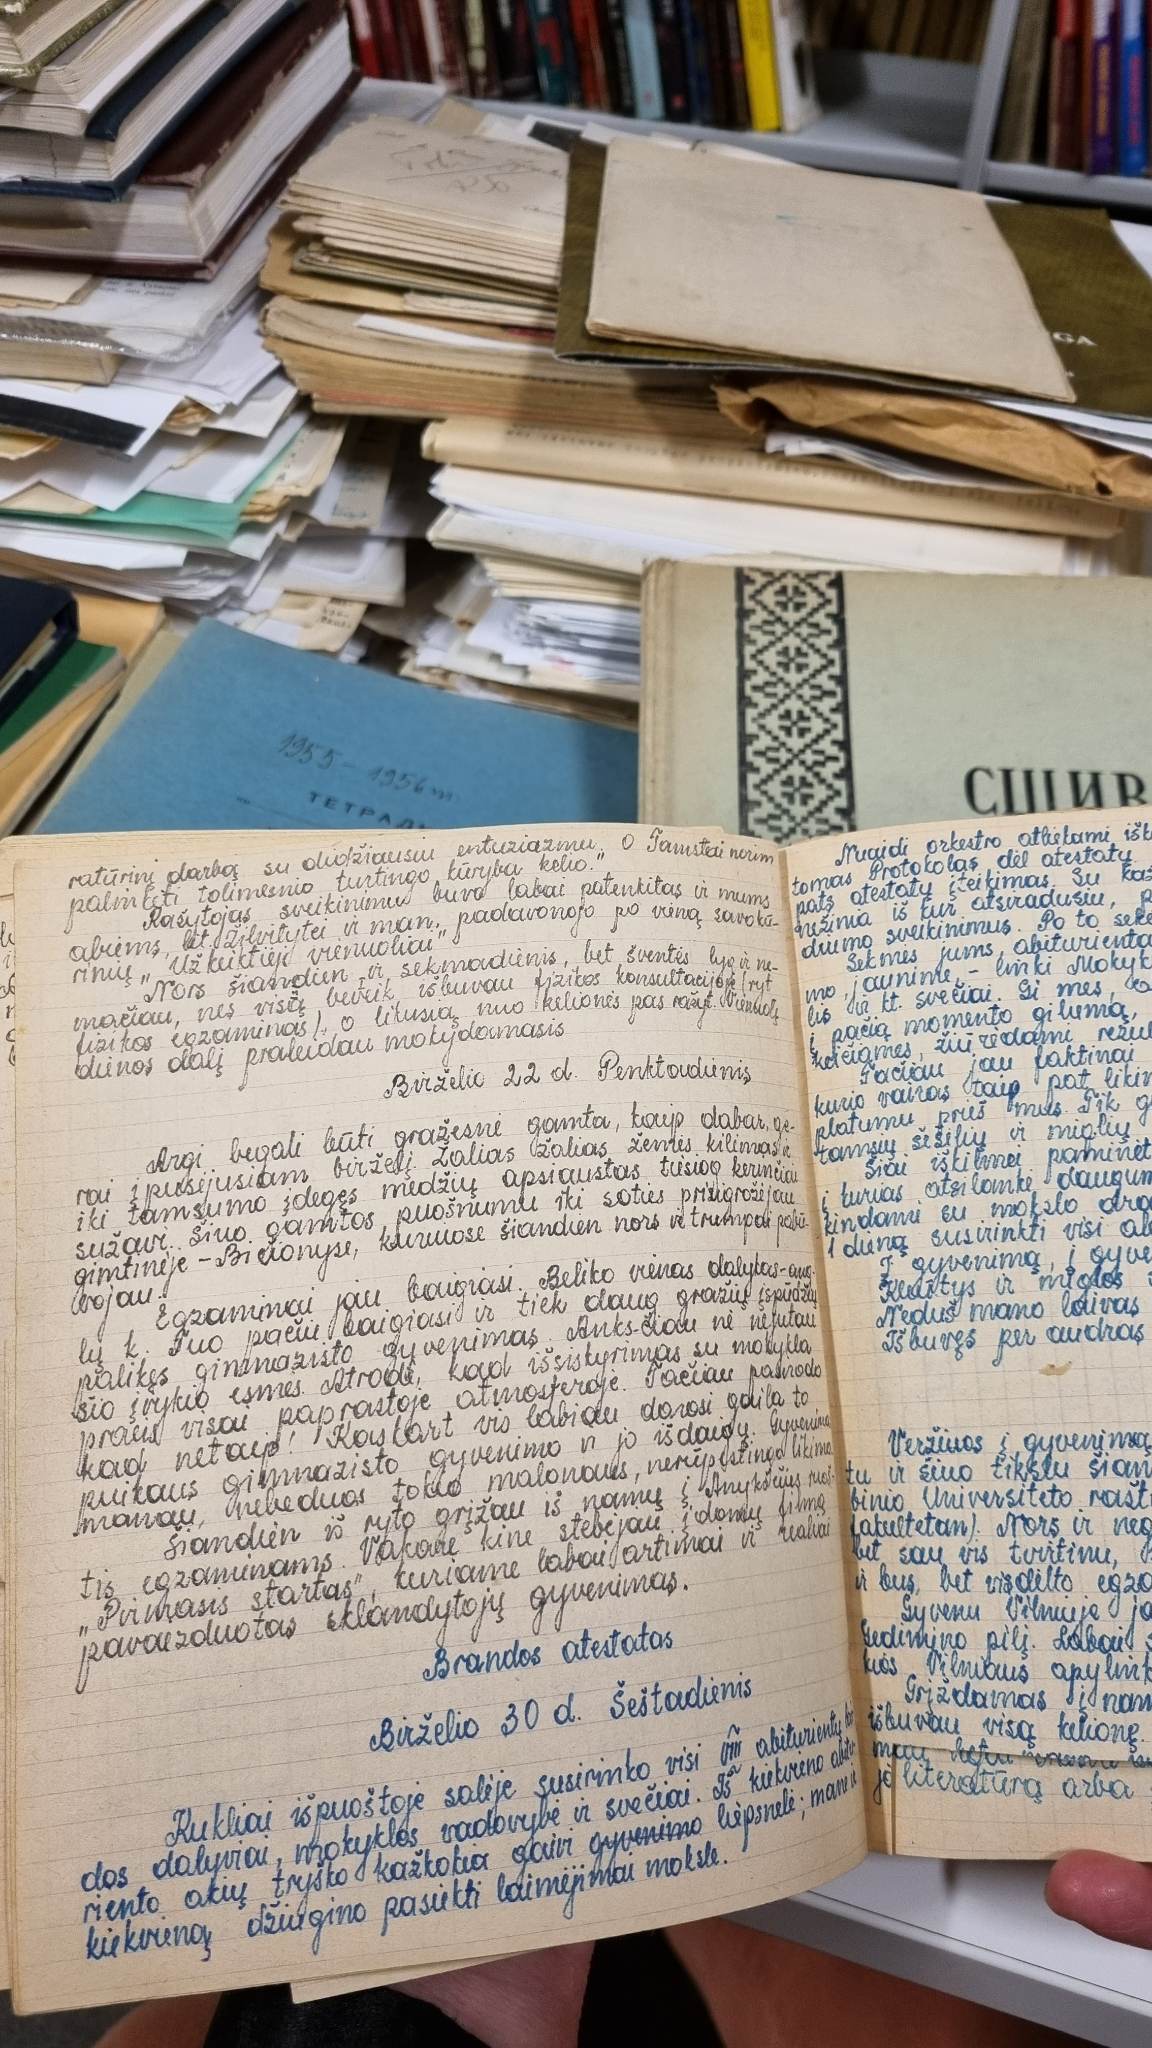 GA
1955 - 1956 m.
ТЕТРАДЬ
СШИВ
ratūrinį darbą su didžiausiu entuziazmu. O Tamstai norim
palinkėti tolimesnio turtingo kūrybą kelio."
Rašytojas sveikinimu buvo labai patenkitas ir mums
abiems, bet Žilvitytei ir man, padavonojo po vieną savo kū-
rinių „Užkeiktieji vienuoliai"
Nors šiandien ir sekmadienis, bet šventės lyg ir ne-
mačiau, nes visą beveik išbuvau fizikos konsultacijoje (ryt
fizikos egzaminas), o likusią nuo kelionės pas rašyt. Vienuolį
dienos dalį praleidau mokydamasis
Birželio 22 d. Penktadienis
Argi begali būti gražesnė gamta, kaip dabar, ge-
rai įpusėjusiam birželį žalias žalias žemės kilimas ir
iki tamsumo įdegęs medžių apsiaustas tiesiog kerinčiai
sužavi. Šiuo gamtos puošnumu iki soties prisigrožėjau
gimtinėje - Bičionyse, kuriuose šiandien nors ir trumpai pabū-
vojau.
Egzaminai jau baigiasi. Beliko vienas dalykas - ang-
lų k. Tuo pačiu baigiasi ir tiek daug gražių įspūdžių
palikęs gimnazisto gyvenimas. Anks-čiau nė nejutau
šio įvykio esmės. Atrodė, kad išsiskyrimas su mokykla
praeis visai paprastoje atmosferoje. Tačiau pasirodo
kad netaip! Kaskart vis labiau darosi gaila to
puikaus gimnazisto gyvenimo ir jo išdaigų. Gyvenime
manau, nebeduos tokio malonaus, nerūpestingo likimo
Šiandien iš ryto grįžau iš namų į Anykščius ruoš-
tis egzaminams. Vakare kine stebėjau įdomų filmą
„Pirmasis startas", kuriame labai artimai ir realiai
pavaizduotas sklandytojų gyvenimas.
Brandos atestatas
Birželio 30 d. Šeštadienis
Kukliai išpuoštoje salėje susirinko visi VIII abiturientų
dos dalyviai, mokyklos vadovybė ir svečiai. Iš kiekvieno abitu-
riento akių tryško kažkokia gaivi gyvenimo liepsnelė; mane ir
kiekvieną džiugino pasiekti laimėjimai moksle.
Nuaidi orkestro atliekami
tomas Protokolas dėl atestatų
pats atestatų įteikimas. Su
nežinia iš kur atsiradusiu,
diumo sveikinimus. Po to
Sėkmės jums, abiturientai
mo jaunime, - linki Mokyk
lis ir kt. svečiai. Gi mes,
į pačią momento gilumą,
keičiamės, žiūrėdami
Tačiau jau faktinai
kurio vairas taip pat likim
platumu prieš mus. Tik
tamsių šešėlių ir miglų
Šiai iškilmei paminėt
į kurias atsilankė daugum
kindami su mokslo
1 dieną susirinkti visi
Į gyvenimą, į gyve
Kliūtys ir miglos
Neduš mano laivas
Išbuvęs per audras
Veržiuos į gyvenimą
tu ir šiuo tikslu šian
binio Universiteto rašt
fakultetan). Nors ir
bet sau vis tvirtinu,
ir bus, bet visdėlto egza
Gyvenu Vilniuje
Gedimino pilį. Labai
kios Vilniaus apylink
Grįždamas į nam
išbuvau visą kelionę.
jo literatūrą arba